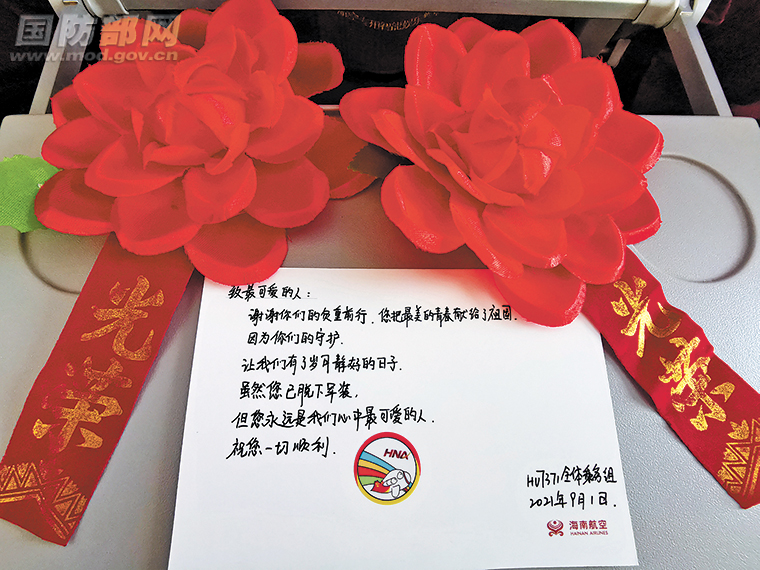 国防部网
www.mod.gov.cn
光荣
光荣
致最可爱的人：
谢谢你们的负重前行，您把最美的青春献给了祖国．
因为你们的守护．
让我们有了岁月静好的日子．
虽然您已脱下军装，
但您永远是我们心中最可爱的人．
祝您一切顺利．
HNA
HU7371全体乘务组
2021年9月1日．
海南航空
HAINAN AIRLINES